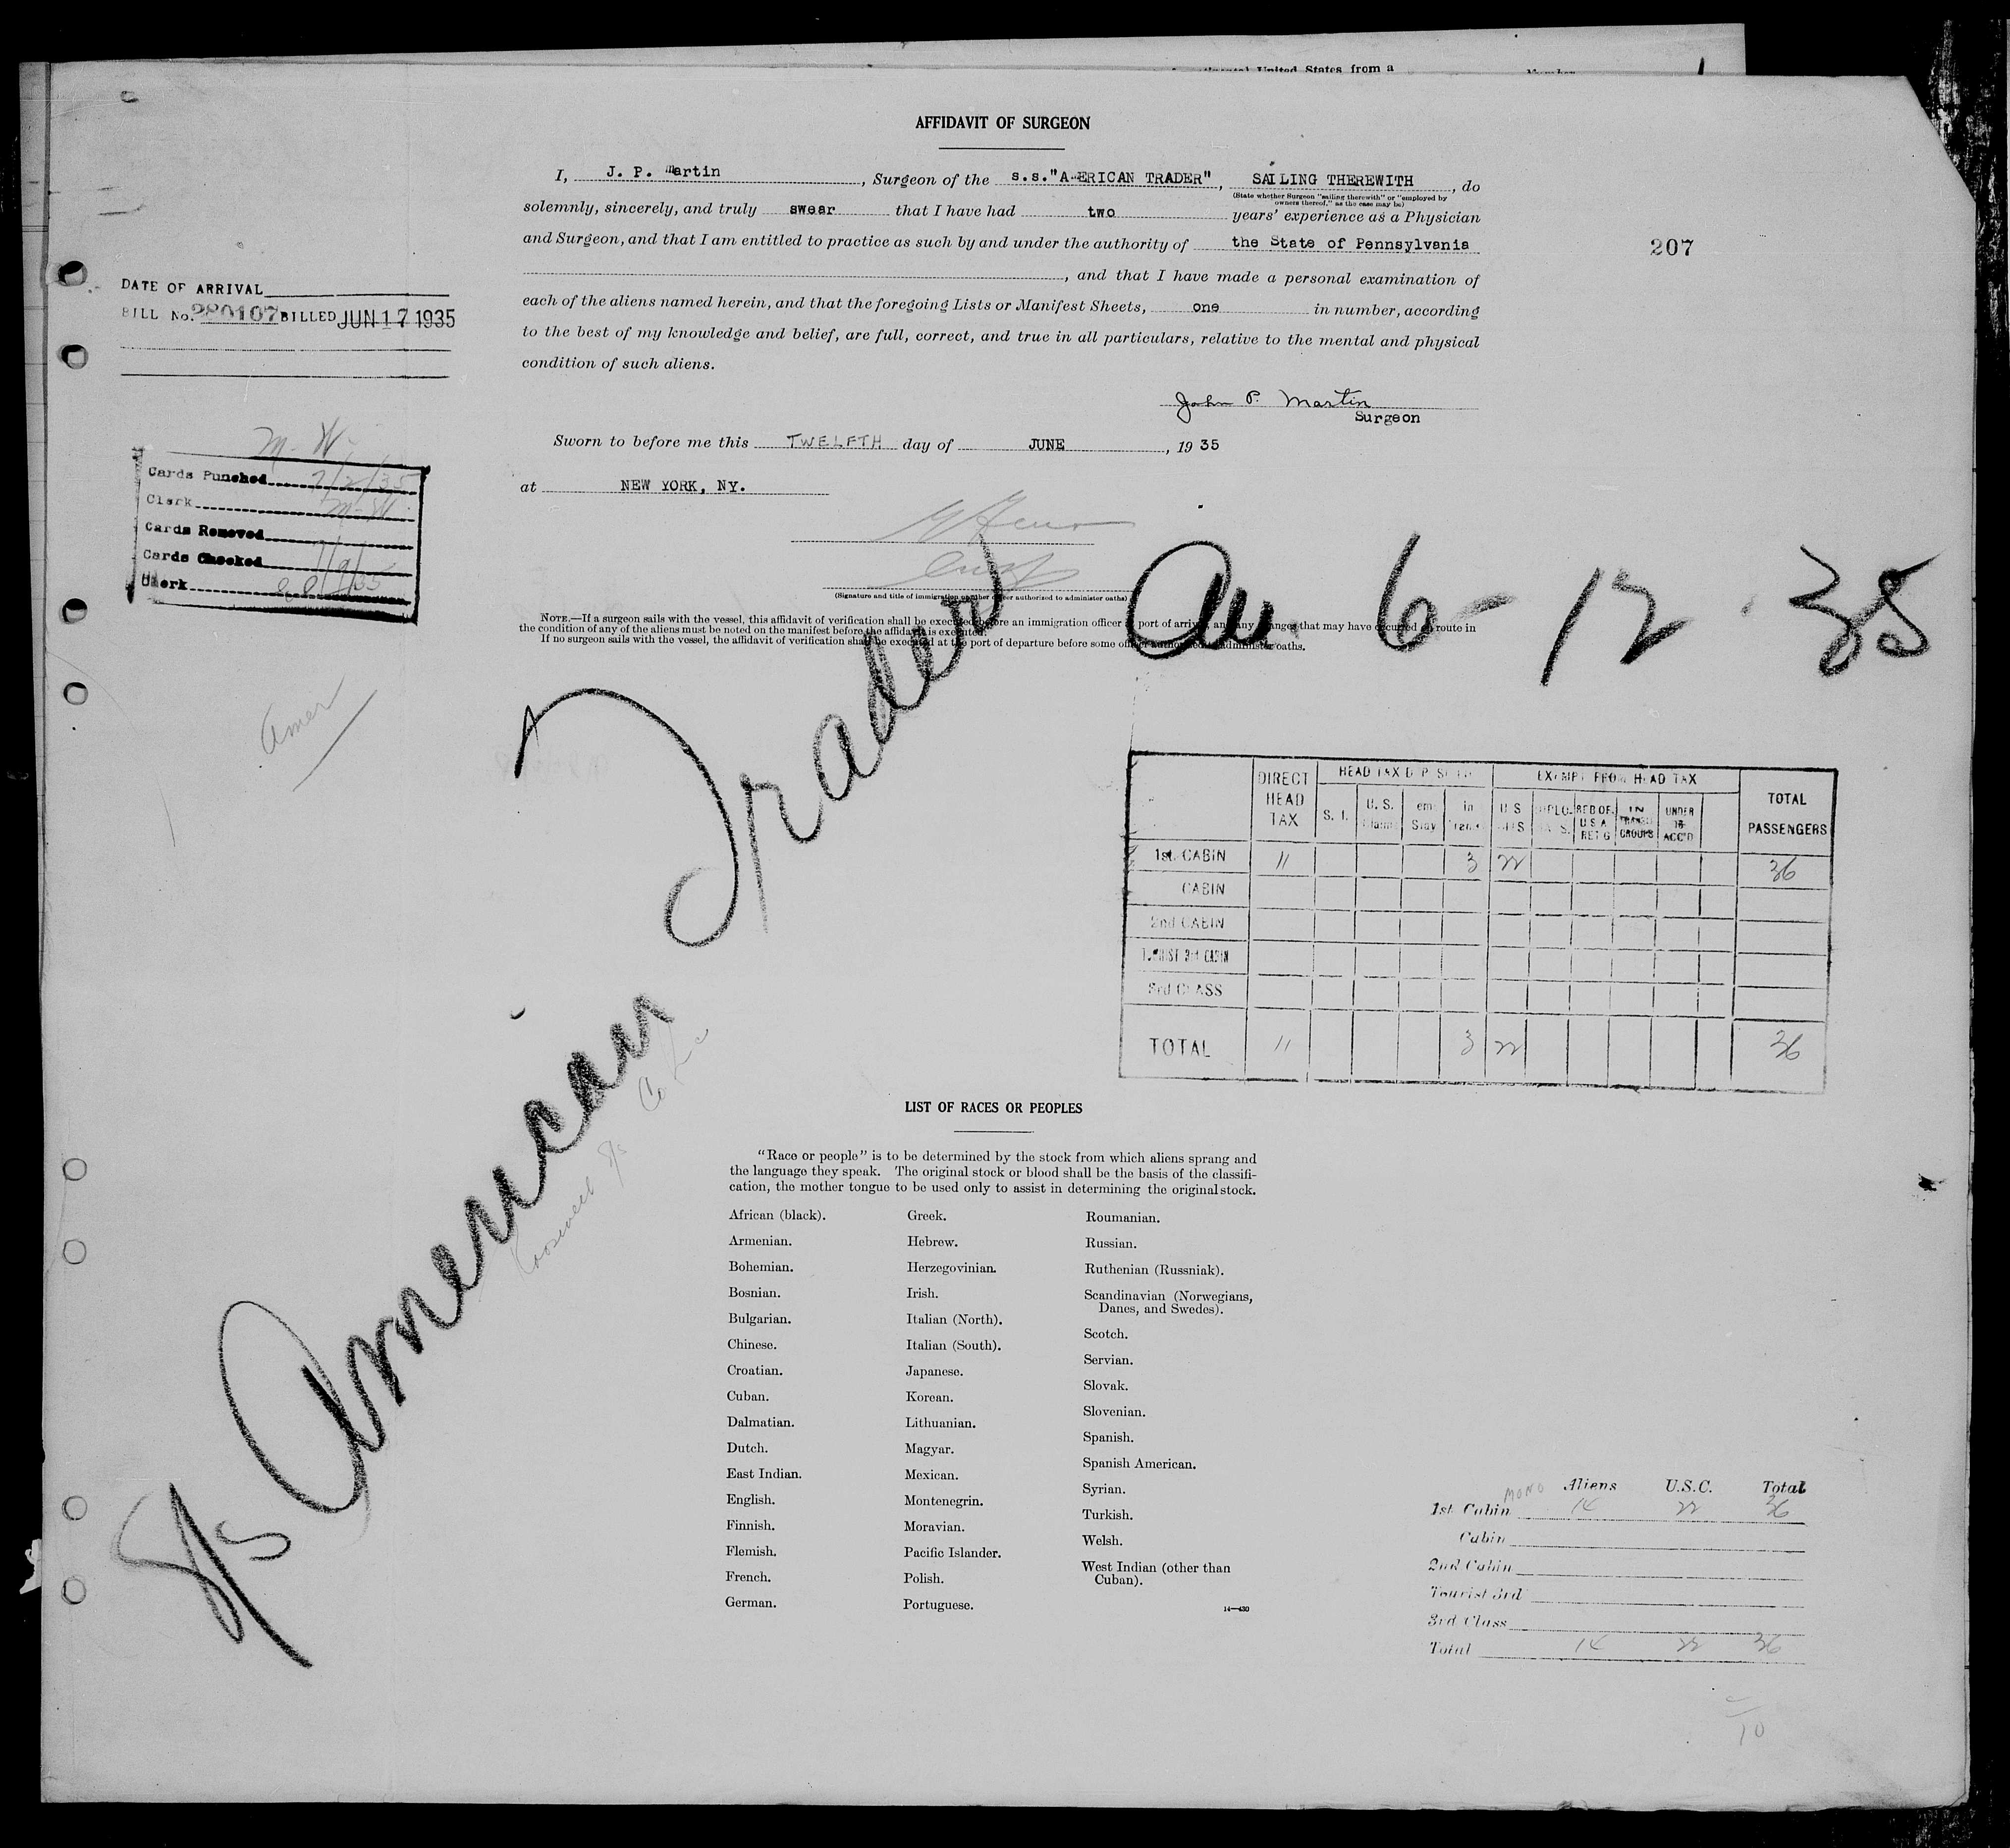 United States from a
AFFIDAVIT OF SURGEON
I, J. P. Martin, Surgeon of the s.s."AMERICAN TRADER", SAILING THEREWITH, do
(State whether Surgeon "sailing therewith" or "employed by
owners thereof," as the case may be)
solemnly, sincerely, and truly swear that I have had two years' experience as a Physician
and Surgeon, and that I am entitled to practice as such by and under the authority of the State of Pennsylvania
207
, and that I have made a personal examination of
each of the aliens named herein, and that the foregoing Lists or Manifest Sheets, one in number, according
to the best of my knowledge and belief, are full, correct, and true in all particulars, relative to the mental and physical
condition of such aliens.
DATE OF ARRIVAL
BILL No. 280107 BILLED JUN 17 1935
John P. Martin
Surgeon
Sworn to before me this TWELFTH day of JUNE, 1935
at NEW YORK, NY.
M-W
Cards Punched 7/2/35
Clerk M-W
Cards Removed
Cards Checked
Clerk
(Signature and title of immigration or other officer authorized to administer oaths)
NOTE.—If a surgeon sails with the vessel, this affidavit of verification shall be executed before an immigration officer at port of arrival, and any changes that may have occurred en route in
the condition of any of the aliens must be noted on the manifest before the affidavit is executed.
If no surgeon sails with the vessel, the affidavit of verification shall be executed at the port of departure before some officer authorized to administer oaths.
6-12-35
Amer
S/S American Trader
DIRECT HEAD TAX
EXEMPT FROM HEAD TAX
TOTAL PASSENGERS
S. I.
U. S.
in
U S
REB OF. U S A RET G
IN TRANSIT GROUPS
UNDER 16 ACC'D
1st. CABIN 11 3 22 36
CABIN
2nd CABIN
TOURIST 3rd CABIN
3rd CLASS
TOTAL 11 3 22 36
LIST OF RACES OR PEOPLES
"Race or people" is to be determined by the stock from which aliens sprang and
the language they speak. The original stock or blood shall be the basis of the classifi-
cation, the mother tongue to be used only to assist in determining the original stock.
African (black).
Armenian.
Bohemian.
Bosnian.
Bulgarian.
Chinese.
Croatian.
Cuban.
Dalmatian.
Dutch.
East Indian.
English.
Finnish.
Flemish.
French.
German.
Greek.
Hebrew.
Herzegovinian.
Irish.
Italian (North).
Italian (South).
Japanese.
Korean.
Lithuanian.
Magyar.
Mexican.
Montenegrin.
Moravian.
Pacific Islander.
Polish.
Portuguese.
Roumanian.
Russian.
Ruthenian (Russniak).
Scandinavian (Norwegians,
Danes, and Swedes).
Scotch.
Servian.
Slovak.
Slovenian.
Spanish.
Spanish American.
Syrian.
Turkish.
Welsh.
West Indian (other than
Cuban).
14—430
MONO Aliens U.S.C. Total
1st Cabin 14 22 36
Cabin
2nd Cabin
Tourist 3rd
3rd Class
Total 14 22 36
10